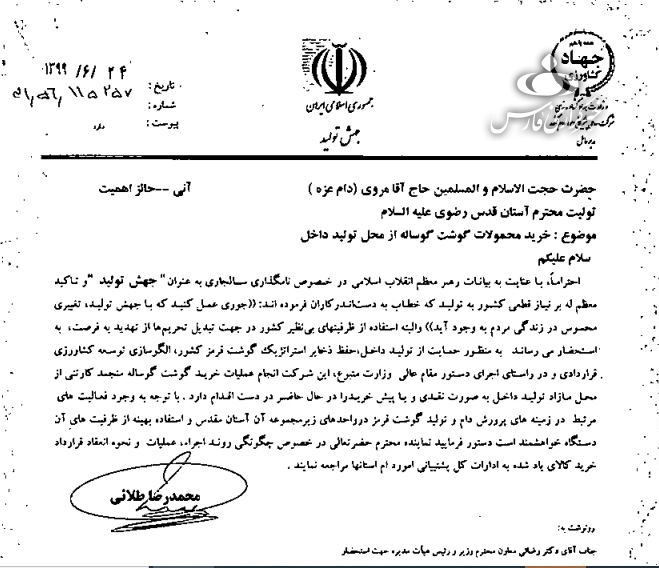 جهاد
کشاورزی
خبرگزاری فارس
جمهوری اسلامی ایران
جهش تولید
تاریخ: ۱۳۹۹/۶/۲۴
شماره:
پیوست: دارد
مدیرعامل
حضرت حجت الاسلام و المسلمین حاج آقا مروی (دام عزه ) آنی --حائز اهمیت
تولیت محترم آستان قدس رضوی علیه السلام
موضوع : خرید محمولات گوشت گوساله از محل تولید داخل
سلام علیکم
احتراماً، با عنایت به بیانات رهبر معظم انقلاب اسلامی در خصوص نامگذاری سالجاری به عنوان" جهش تولید "و تاکید
معظم له بر نیاز قطعی کشور به تولید که خطاب به دست‌اندرکاران فرموده اند: ((جوری عمل کنید که با جهش تولید، تغییری
محسوس در زندگی مردم به وجود آید)) والبته استفاده از ظرفیتهای بی‌نظیر کشور در جهت تبدیل تحریم‌ها از تهدید به فرصت، به
استحضار می رساند به منظور حمایت از تولید داخل،حفظ ذخایر استراتژیک گوشت قرمز کشور، الگوسازی توسعه کشاورزی
قراردادی و در راستای اجرای دستور مقام عالی وزارت متبوع، این شرکت انجام عملیات خرید گوشت گوساله منجمد کارتنی از
محل مازاد تولید داخل به صورت نقدی و یا پیش خریدرا در حال حاضر در دست اقدام دارد . با توجه به وجود فعالیت های
مرتبط در زمینه های پرورش دام و تولید گوشت قرمز درواحدهای زیرمجموعه آن آستان مقدس و استفاده بهینه از ظرفیت های آن
دستگاه خواهشمند است دستور فرمایید نماینده محترم حضرتعالی در خصوص چگونگی روند اجراء، عملیات و نحوه انعقاد قرارداد
خرید کالای یاد شده به ادارات کل پشتیبانی امورد ام استانها مراجعه نمایند .
محمدرضا طلائی
رونوشت به:
جناب آقای دکتر رضائی معاون محترم وزیر و رئیس هیأت مدیره جهت استحضار